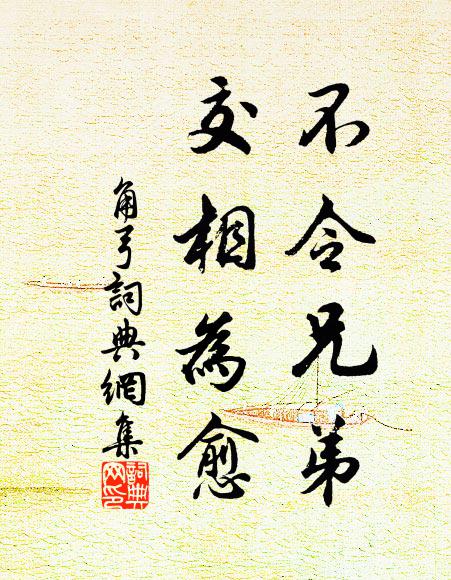 不令兄弟
交相為愈
角弓詞典網集
詞典网印